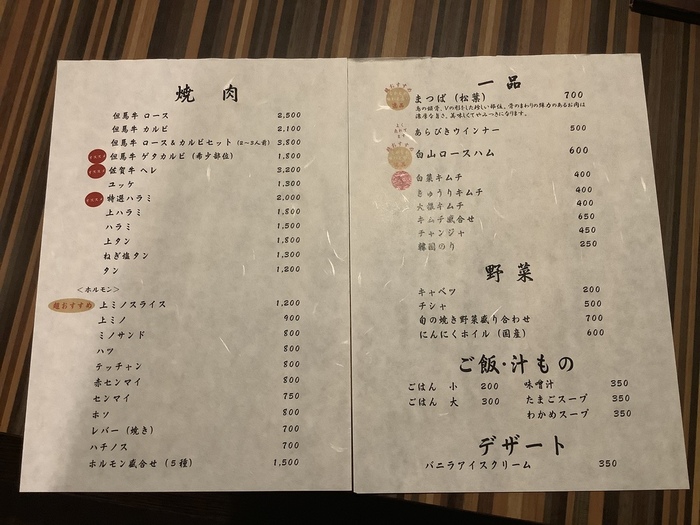 焼 肉
但馬牛 ロース 2,500
但馬牛 カルビ 2,100
但馬牛 ロース&カルビセット (2~3人前) 3,800
但馬牛 ゲタカルビ (希少部位) 1,800
佐賀牛 ヘレ 3,200
ユッケ 1,300
特選ハラミ 2,000
上ハラミ 1,800
ハラミ 1,500
上タン 1,800
ねぎ塩タン 1,300
タン 1,200
<ホルモン>
超おすすめ 上ミノスライス 1,200
上ミノ 900
ミノサンド 800
ハツ 800
テッチャン 800
赤センマイ 800
センマイ 750
ホソ 800
レバー (焼き) 700
ハチノス 700
ホルモン盛合せ (5種) 1,500
一 品
まつば (松葉) 700
鳥の鎖骨、Vの形をした珍しい部位。骨のまわりの弾力のあるお肉は
濃厚な旨さ、美味しくてやみつきになります。
あらびきウインナー 500
白山ロースハム 600
白菜キムチ 400
きゅうりキムチ 400
大根キムチ 400
キムチ盛合せ 650
チャンジャ 450
韓国のり 250
野 菜
キャベツ 200
チシャ 500
旬の焼き野菜盛り合わせ 700
にんにくホイル (国産) 600
ご飯・汁もの
ごはん 小 200 味噌汁 350
ごはん 大 300 たまごスープ 350
わかめスープ 350
デザート
バニラアイスクリーム 350